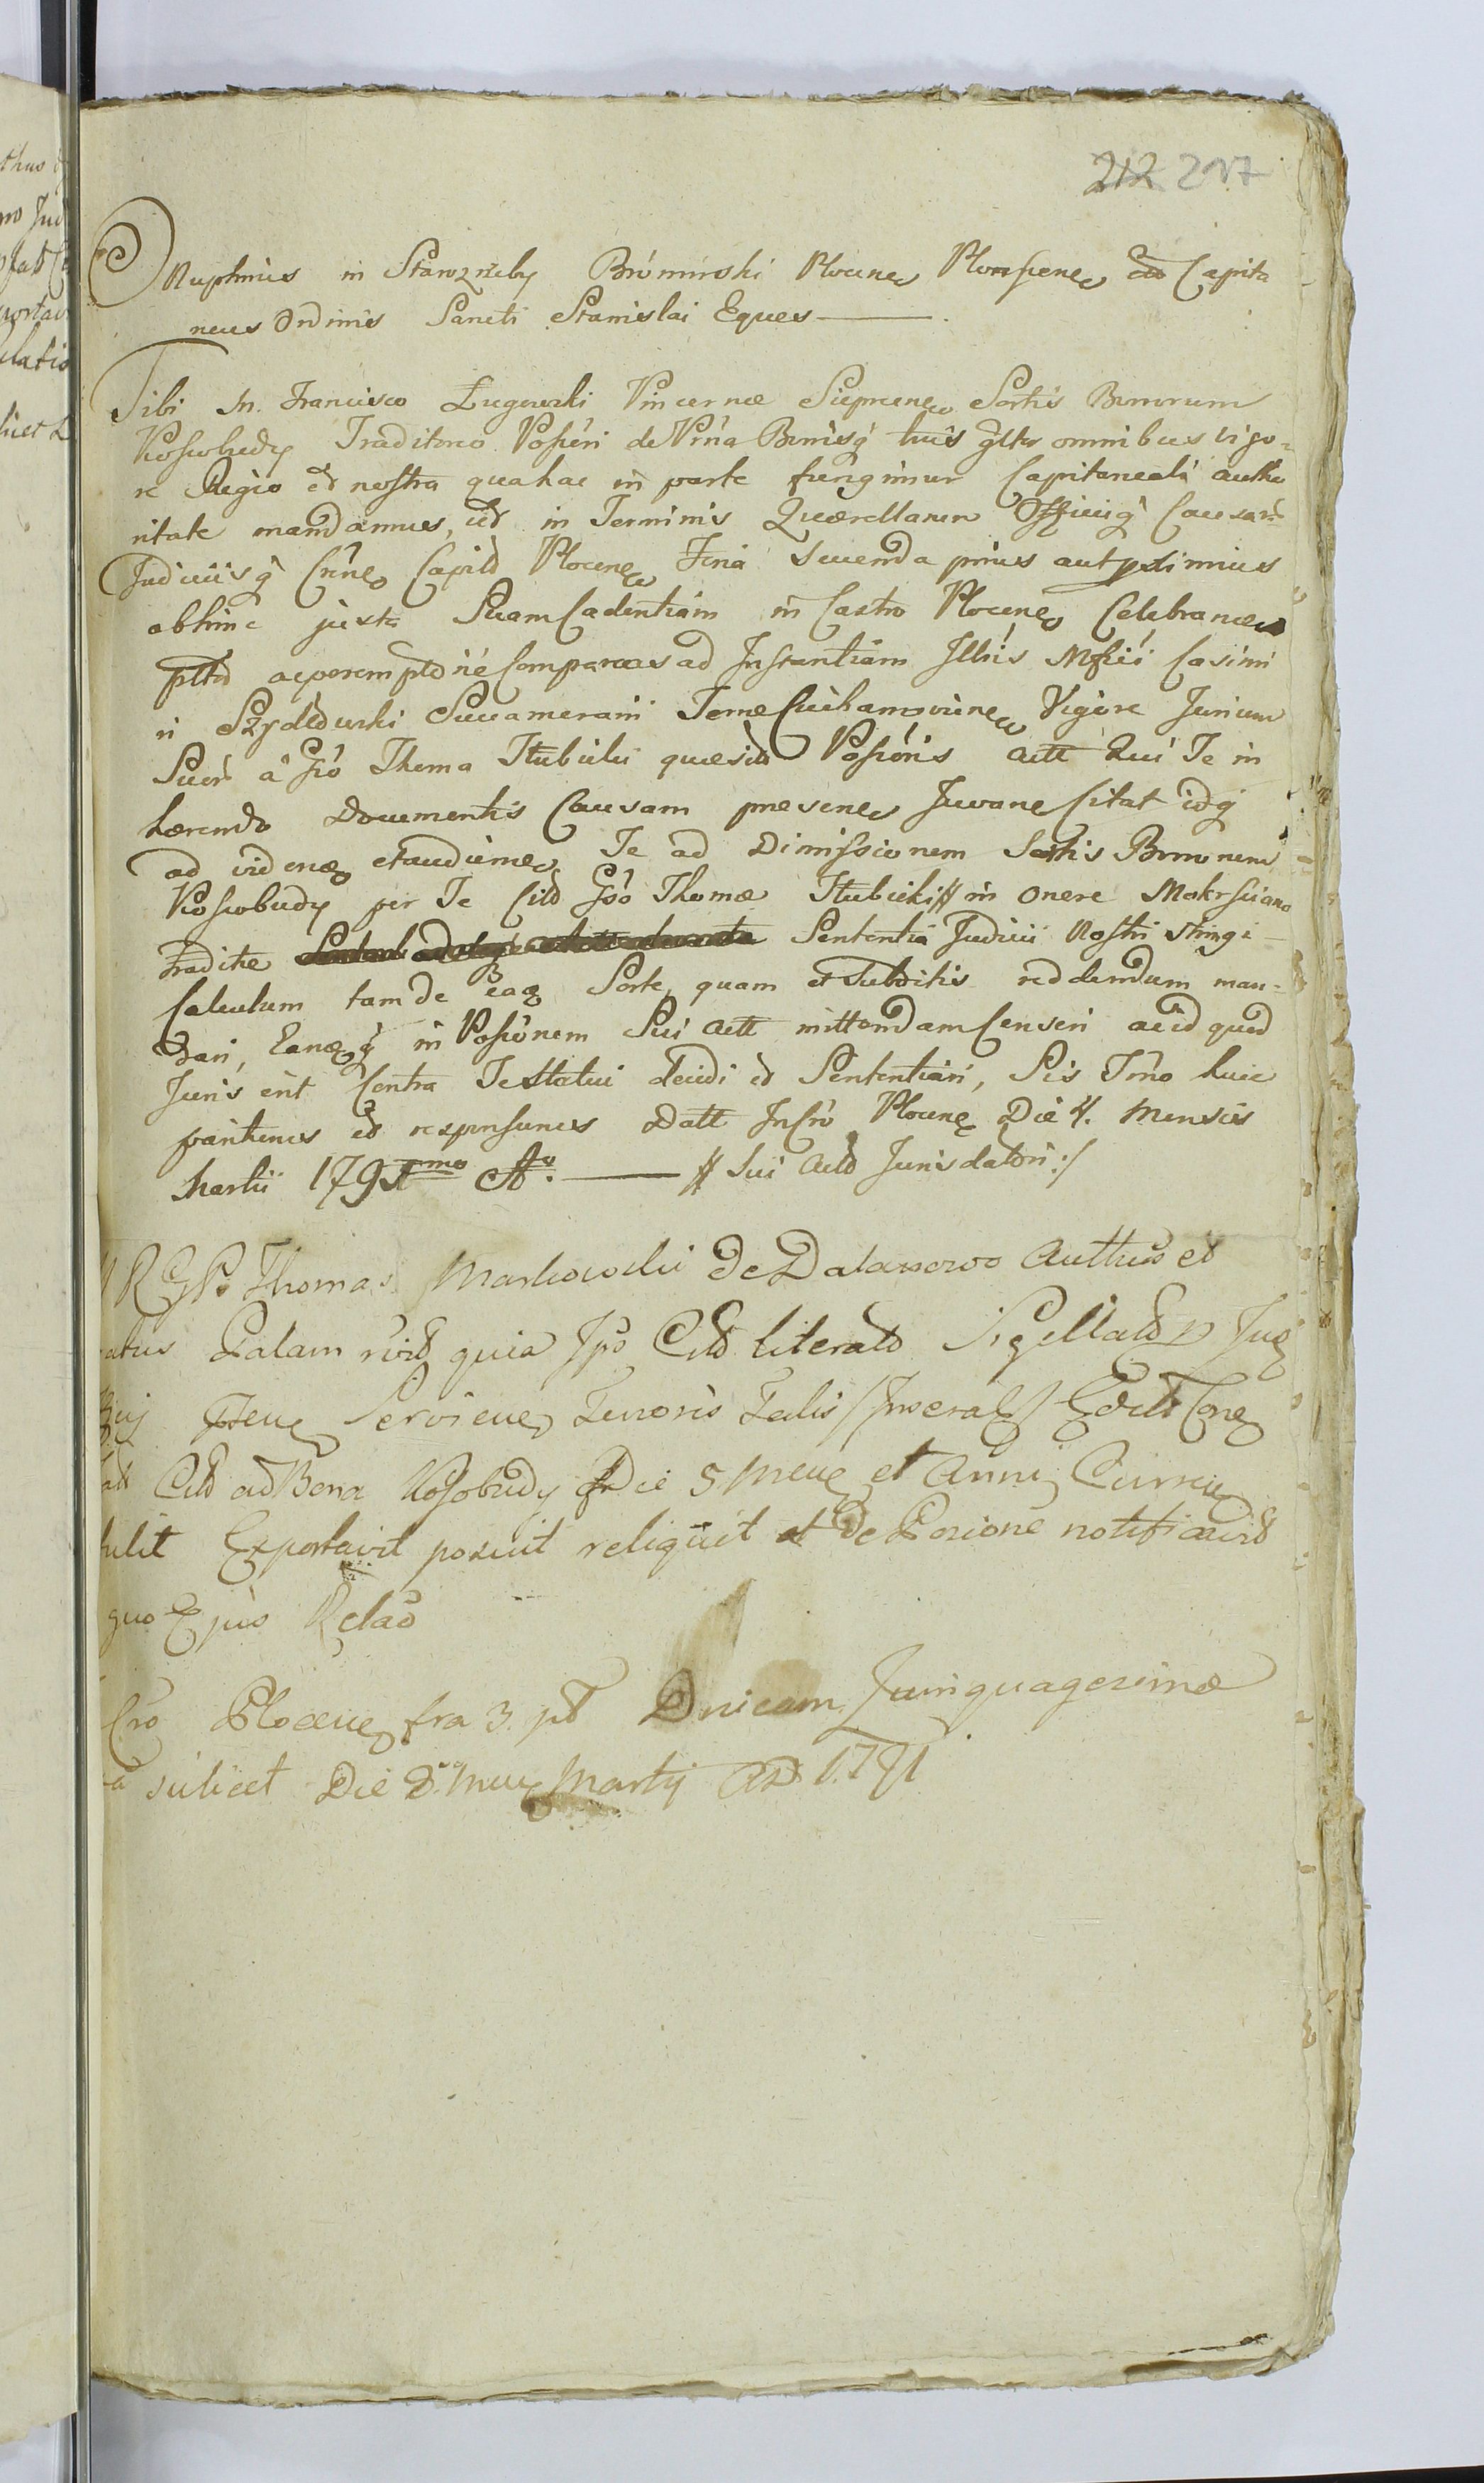 212 217
Onuphrius in Starozreby Brómirski Plocenes Plonscenes Capita
neus Ordinis Sancti Stanislai Eques
Tibi M. Francisco Lugowski Pincernæ Sieprcenes Sortis Bonorum
Kossobudy Traditorio Possori de Prna Bonisq̃ tuis gltr omnibus vigo=
re Regio et nostra qua hac in parte fungimur Capitaneali autho
ritate mandamus, ut in Terminis Querellarum Officiiq̃ Causar
Judiciisq̃ Capitlb Plocenes Feria secunda prius aut proximius
abhinc juxta Suam Cadentiam in Castro Plocenes Celebrances
pltr acperemptorie Compareas ad Instantiam Illris Mfici Casimi
ri Szydłowski Succamerarii Terræ Ciechanoviencs Vigore Jurium
Suor à Gso Thoma Itubicki quæsit Possoris Actt Qui Te in
hærendo Documentis Causam præsenes Juvane Citat idq̃
ad videnes et audienes Te ad Dimissionem Sortis Bonorum
Kossobudy per Te Citd Gso Thomæ Itubicki // in onere
traditæ Sententia Judicii Nostri stringi
Calculum tam de eaq Sorte, quam et Subditis reddendum man=
dari, Eamq̃ in Possionem Sui Actt mittendam Censeri ac id quod
Juris erit Contra Te Statui decidi et Sententiari, Sis Trmo huic
pariturus et responsurus Datt In Cro Plocens Die 4. Mensis
Martii 1791mo Ao. // Sui Actd Jurisdatori :/
R Gs Thomas Markowski De Dalanowo Autthus et
atus Palam quia Ipse Citt literald Sigillatd
Servienes Tenoris Talis /Inseratr/ Editt Cone
Citt ad Bona Kosobudy Die 5 Mens et Anni Currens
tulit Exportavit posuit reliquit et de Posione notificavit
quo Ejus Relao
Cro Plocens fra 3. pt Dnicam Quinquagesimæ
a scilicet Die 8. Mens Martij AD 1791